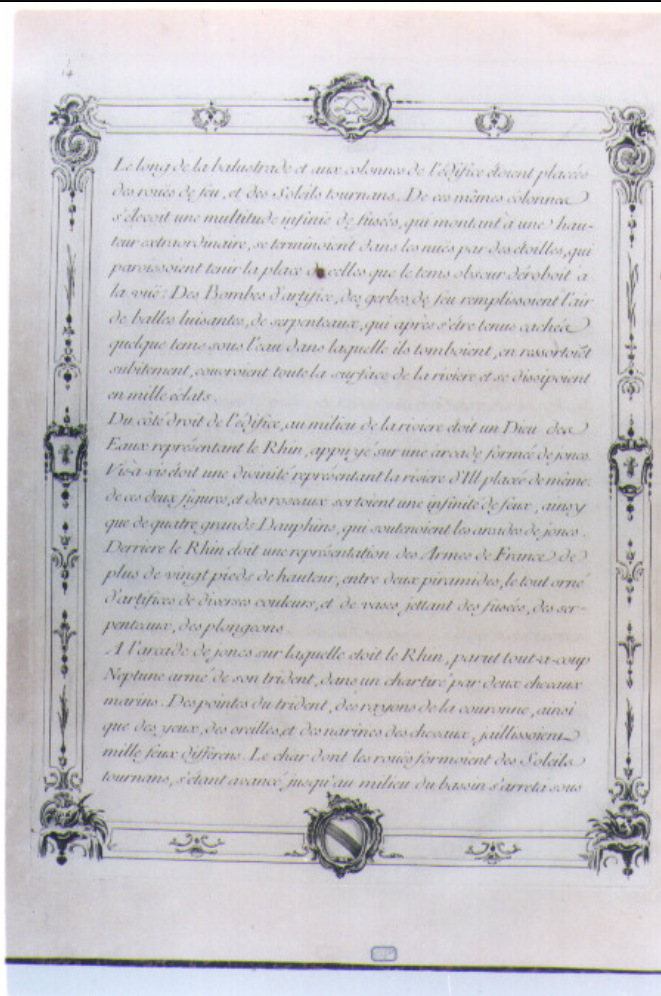 Le long de la balustrade et aux colonnes de l'édifice étoient placées
des roües de feu, et des Soleils tournans. De ces mêmes colonnes
s'élevoit une multitude infinie de fusées, qui montant à une hau-
teur extraordinaire, se terminoient dans les nuës par des étoilles, qui
paroissoient tenir la place de celles que le tems obscur déroboit a
la vuë: Des Bombes d'artifice, des gerbes de feu remplissoient l'air
de balles luisantes, de serpenteaux, qui après s'être tenus cachés
quelque tems sous l'eau dans laquelle ils tomboient, en ressortoiēt
subitement, couvroient toute la surface de la riviére et se dissipoient
en mille éclats.
Du côté droit de l'édifice, au milieu de la riviere étoit un Dieu des
Eaux représentant le Rhin, appuyé sur une arcade formée de joncs.
Vis-à-vis étoit une divinité représentant la riviere d'Ill placée de même.
de ces deux figures, et des roseaux sortoient une infinité de feux, ainsy
que de quatre grands Dauphins, qui soutenoient les arcades de joncs.
Derriere le Rhin étoit une représentation des Armes de France de
plus de vingt pieds de hauteur, entre deux piramides, le tout orné
d'artifices de diverses couleurs, et de vases jettant des fusées, des ser-
penteaux, des plongeons.
A l'arcade de joncs sur laquelle étoit le Rhin, parut tout-a-coup
Neptune armé de son trident, dans un char tiré par deux chevaux
marins. Des pointes du trident, des rayons de la couronne, ainsi
que des yeux, des oreilles, et des narines des chevaux, jaillissoient
mille feux différens. Le char dont les roües formoient des Soleils
tournans, s'étant avancé jusqu'au milieu du bassin s'arreta sous